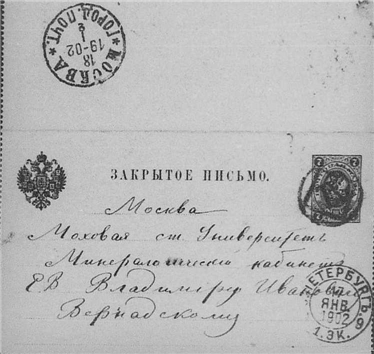 МОСКВА
18
I
19-02
ГОРОД. ПОЧТ.
ЗАКРЫТОЕ ПИСЬМО.
7
7
Москва
Моховая ст. Университетъ
Минералогическiй кабинетъ
ЕВ Владимiру Ивановичу
Вернадскому
ПЕТЕРБУРГЪ
17
ЯНВ.
1902
1. ЭК.
9